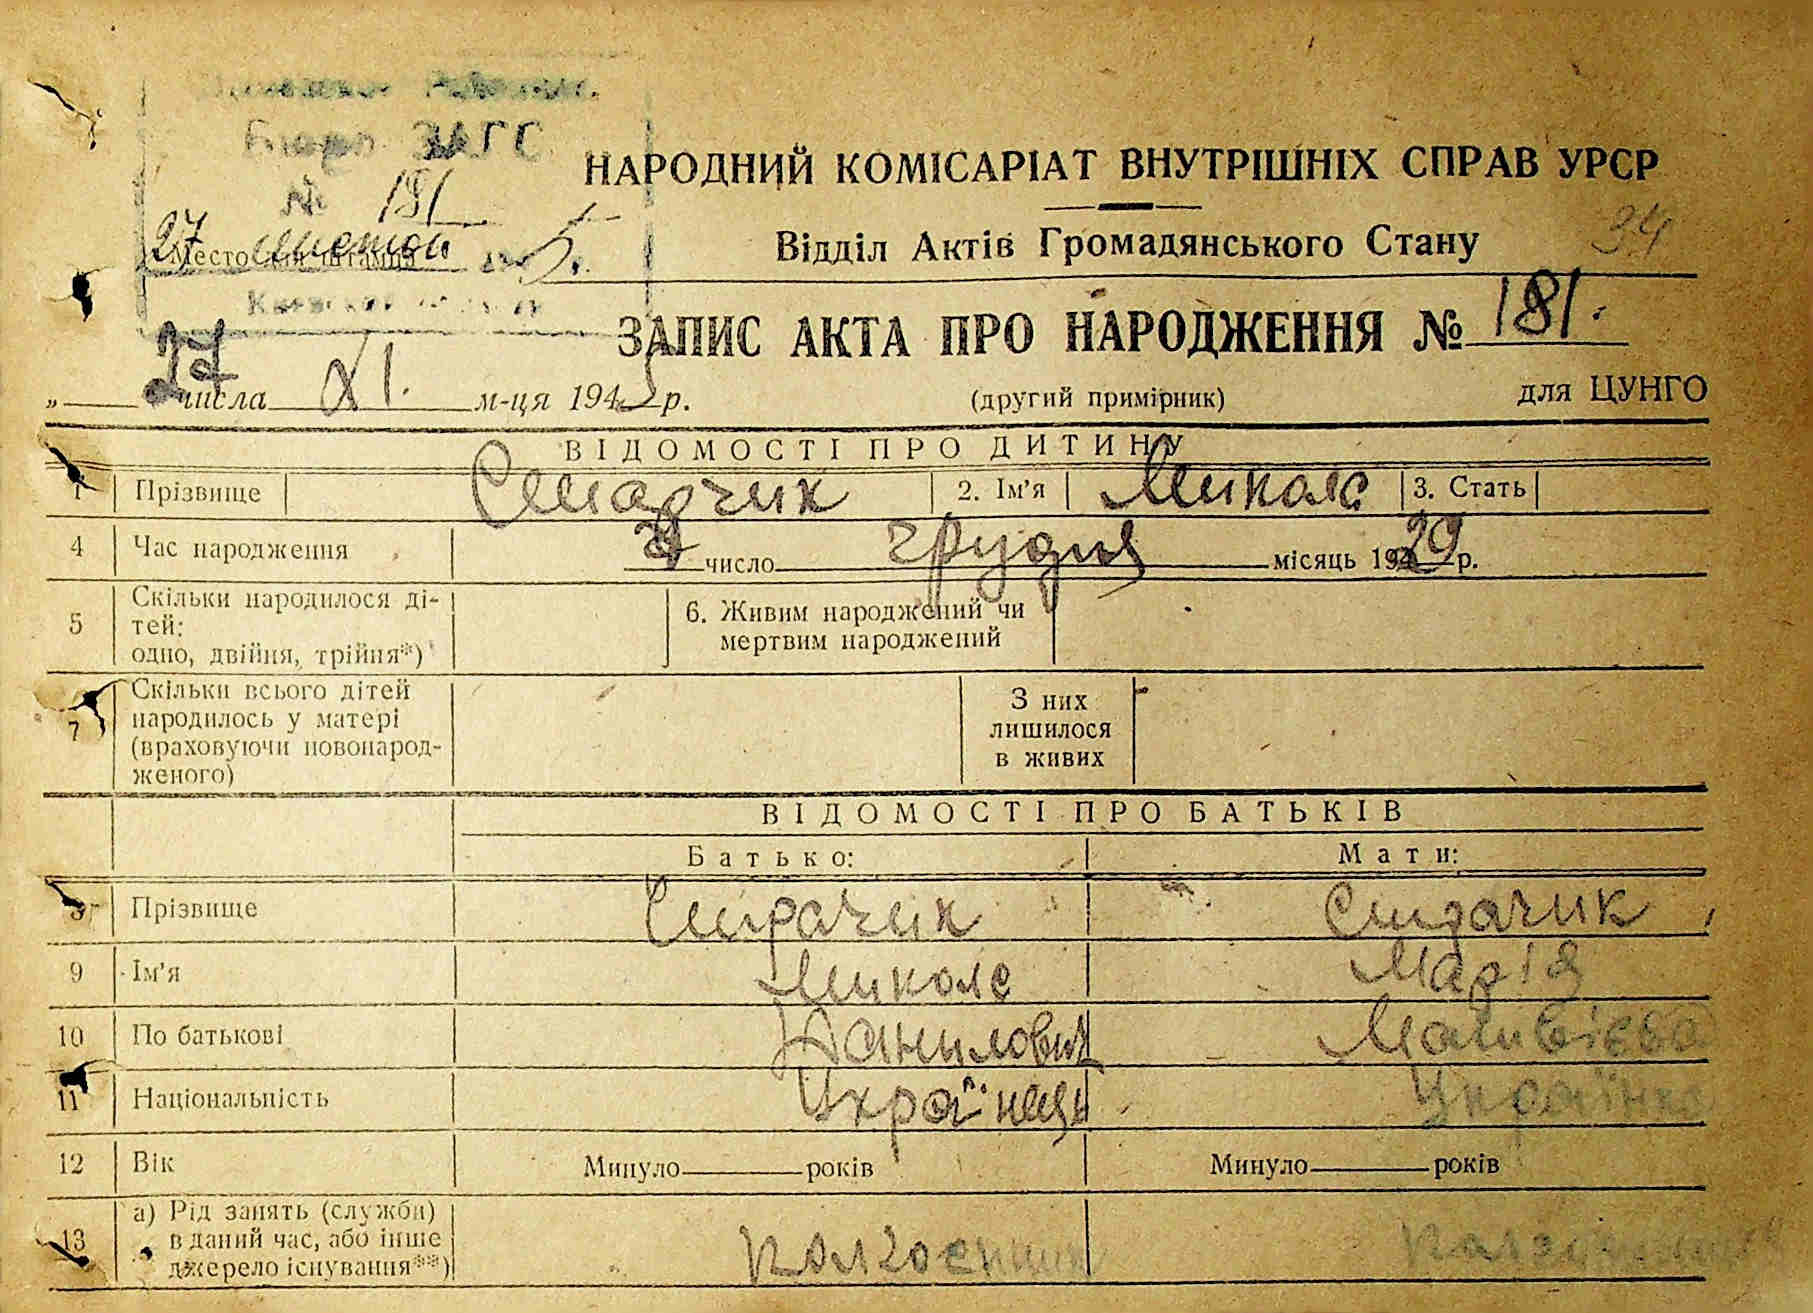 Бюро ЗАГС
№ 181
27 листоп 5.
Место для штампа
НАРОДНИЙ КОМІСАРІАТ ВНУТРІШНІХ СПРАВ УРСР
Відділ Актів Громадянського Стану
94
ЗАПИС АКТА ПРО НАРОДЖЕННЯ № 181.
„ 27 числа XI. м-ця 1945 р. (другий примірник) для ЦУНГО
ВІДОМОСТІ ПРО ДИТИНУ
1 Прізвище 2. Ім’я Микола 3. Стать
4 Час народження число грудня місяць 1929 р.
5 Скільки народилося ді-
тей:
одно, двійня, трійня*)
6. Живим народжений чи
мертвим народжений
7 Скільки всього дітей
народилось у матері
(враховуючи новонарод-
женого)
З них
лишилося
в живих
ВІДОМОСТІ ПРО БАТЬКІВ
Батько: Мати:
8 Прізвище
9 Ім’я Микола Марія
10 По батькові Данилович Матвієва
11 Національність Українець Українка
12 Вік Минуло років Минуло років
13 а) Рід занять (служби)
в даний час, або інше
джерело існування**)
колгоспник